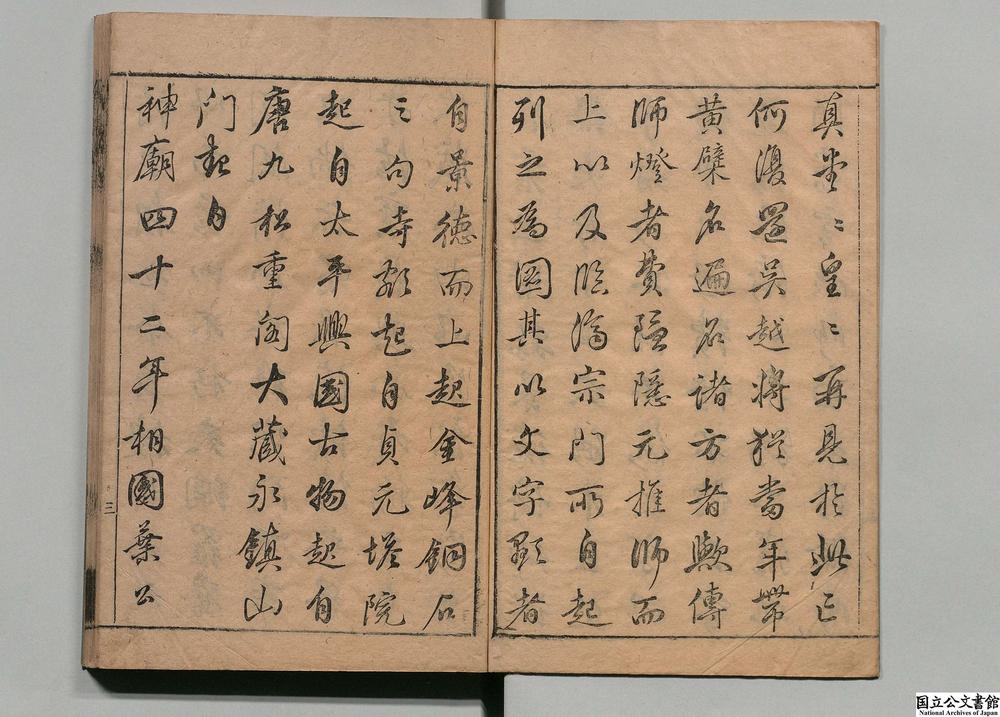 真堂〻皇〻再見於此已
何復置吳越將猶當年帶
黄檗名遍名諸方者歟傳
師燈者費隱隱元推師而
上以及臨濟宗門所自起
列之為圖其以文字顯者
自景德而上起金峰銅石
三句寺額起自貞元塔院
起自太平興國古物起自
唐九松重閣大藏永鎮山
門起自
神廟四十二年相國葉公
三
国立公文書館
National Archives of Japan